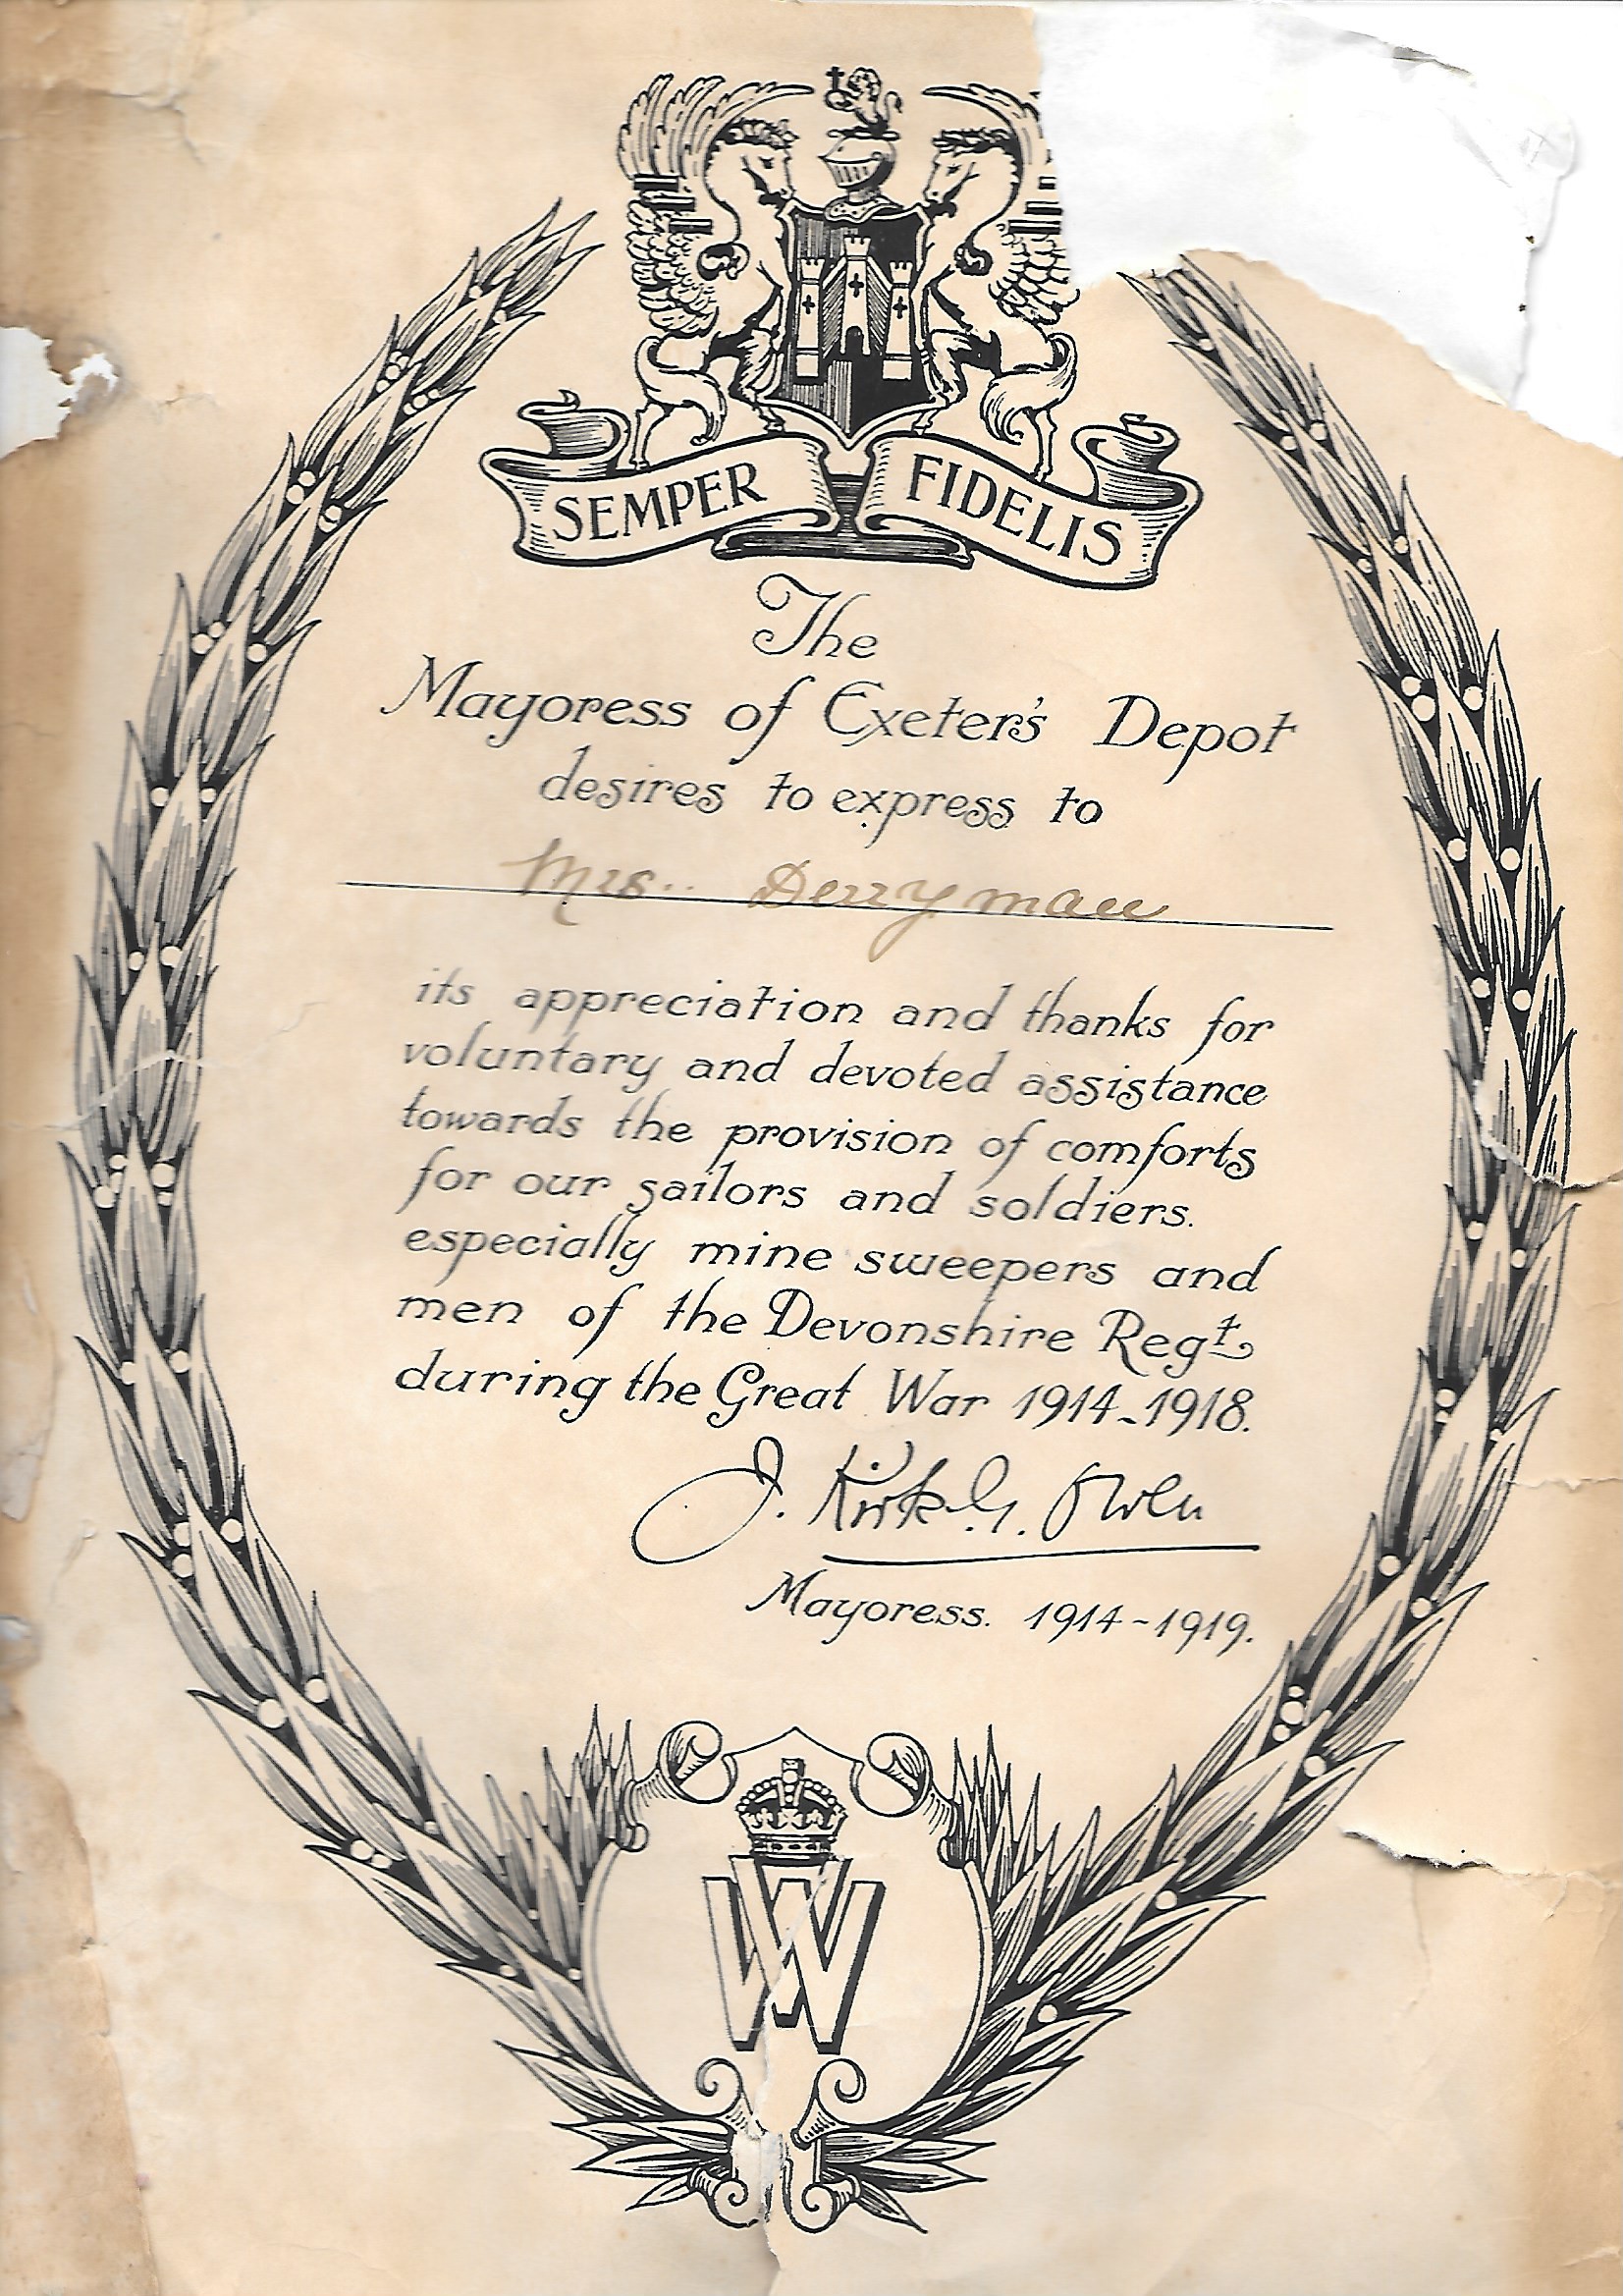 SEMPER FIDELIS
The
Mayoress of Exeter's Depot
desires to express to
Mrs. Derryman
its appreciation and thanks for
voluntary and devoted assistance
towards the provision of comforts
for our sailors and soldiers.
especially mine sweepers and
men of the Devonshire Regt.
during the Great War 1914-1918.
J. Kirk G. Owen
Mayoress. 1914-1919.
VVV